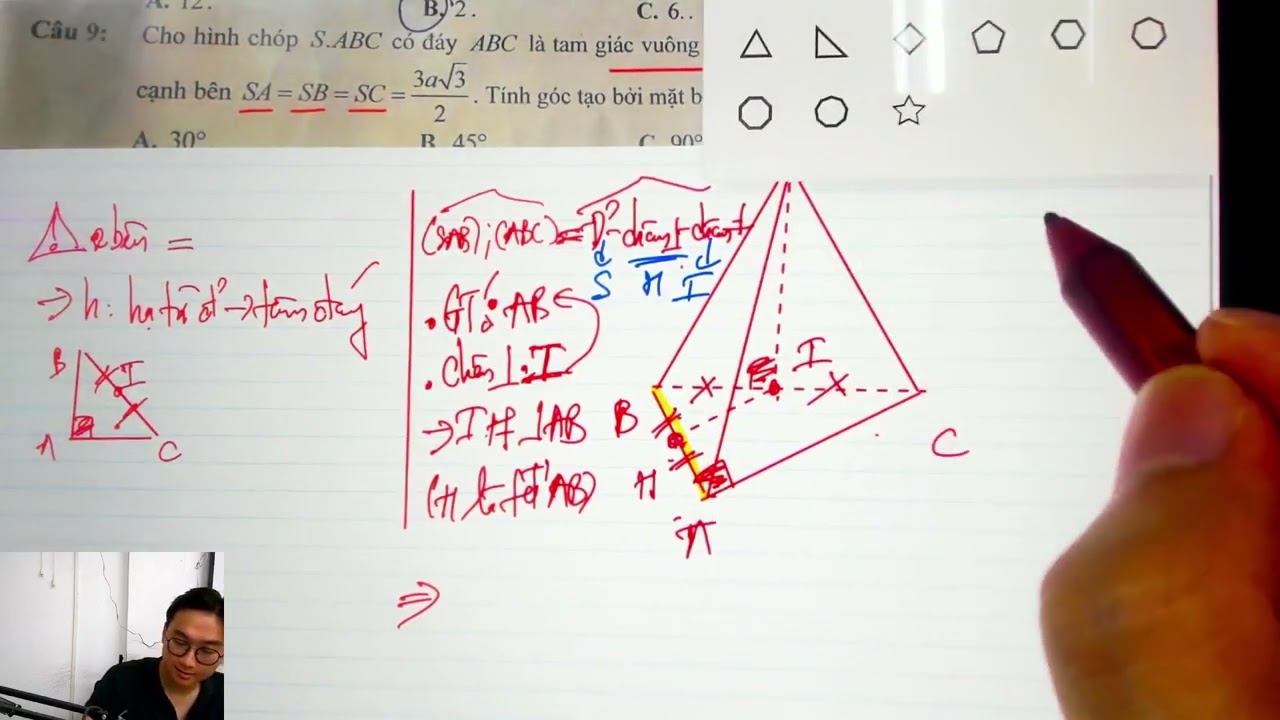 A. 12. B. 2. C. 6..
Câu 9: Cho hình chóp S.ABC có đáy ABC là tam giác vuông
cạnh bên SA = SB = SC = 3a√3/2 . Tính góc tạo bởi mặt b
A. 30° B. 45° C. 90°
e bên =
⇒ h: hạ từ đ' → tâm đáy
B
I
A
C
(SAB); (ABC) = Đ' - chân⊥ - chân⊥
S H I
. GT: AB
. chân ⊥: I
→ IH ⊥ AB
(H là tđ AB)
⇒
I
B
H
A
C